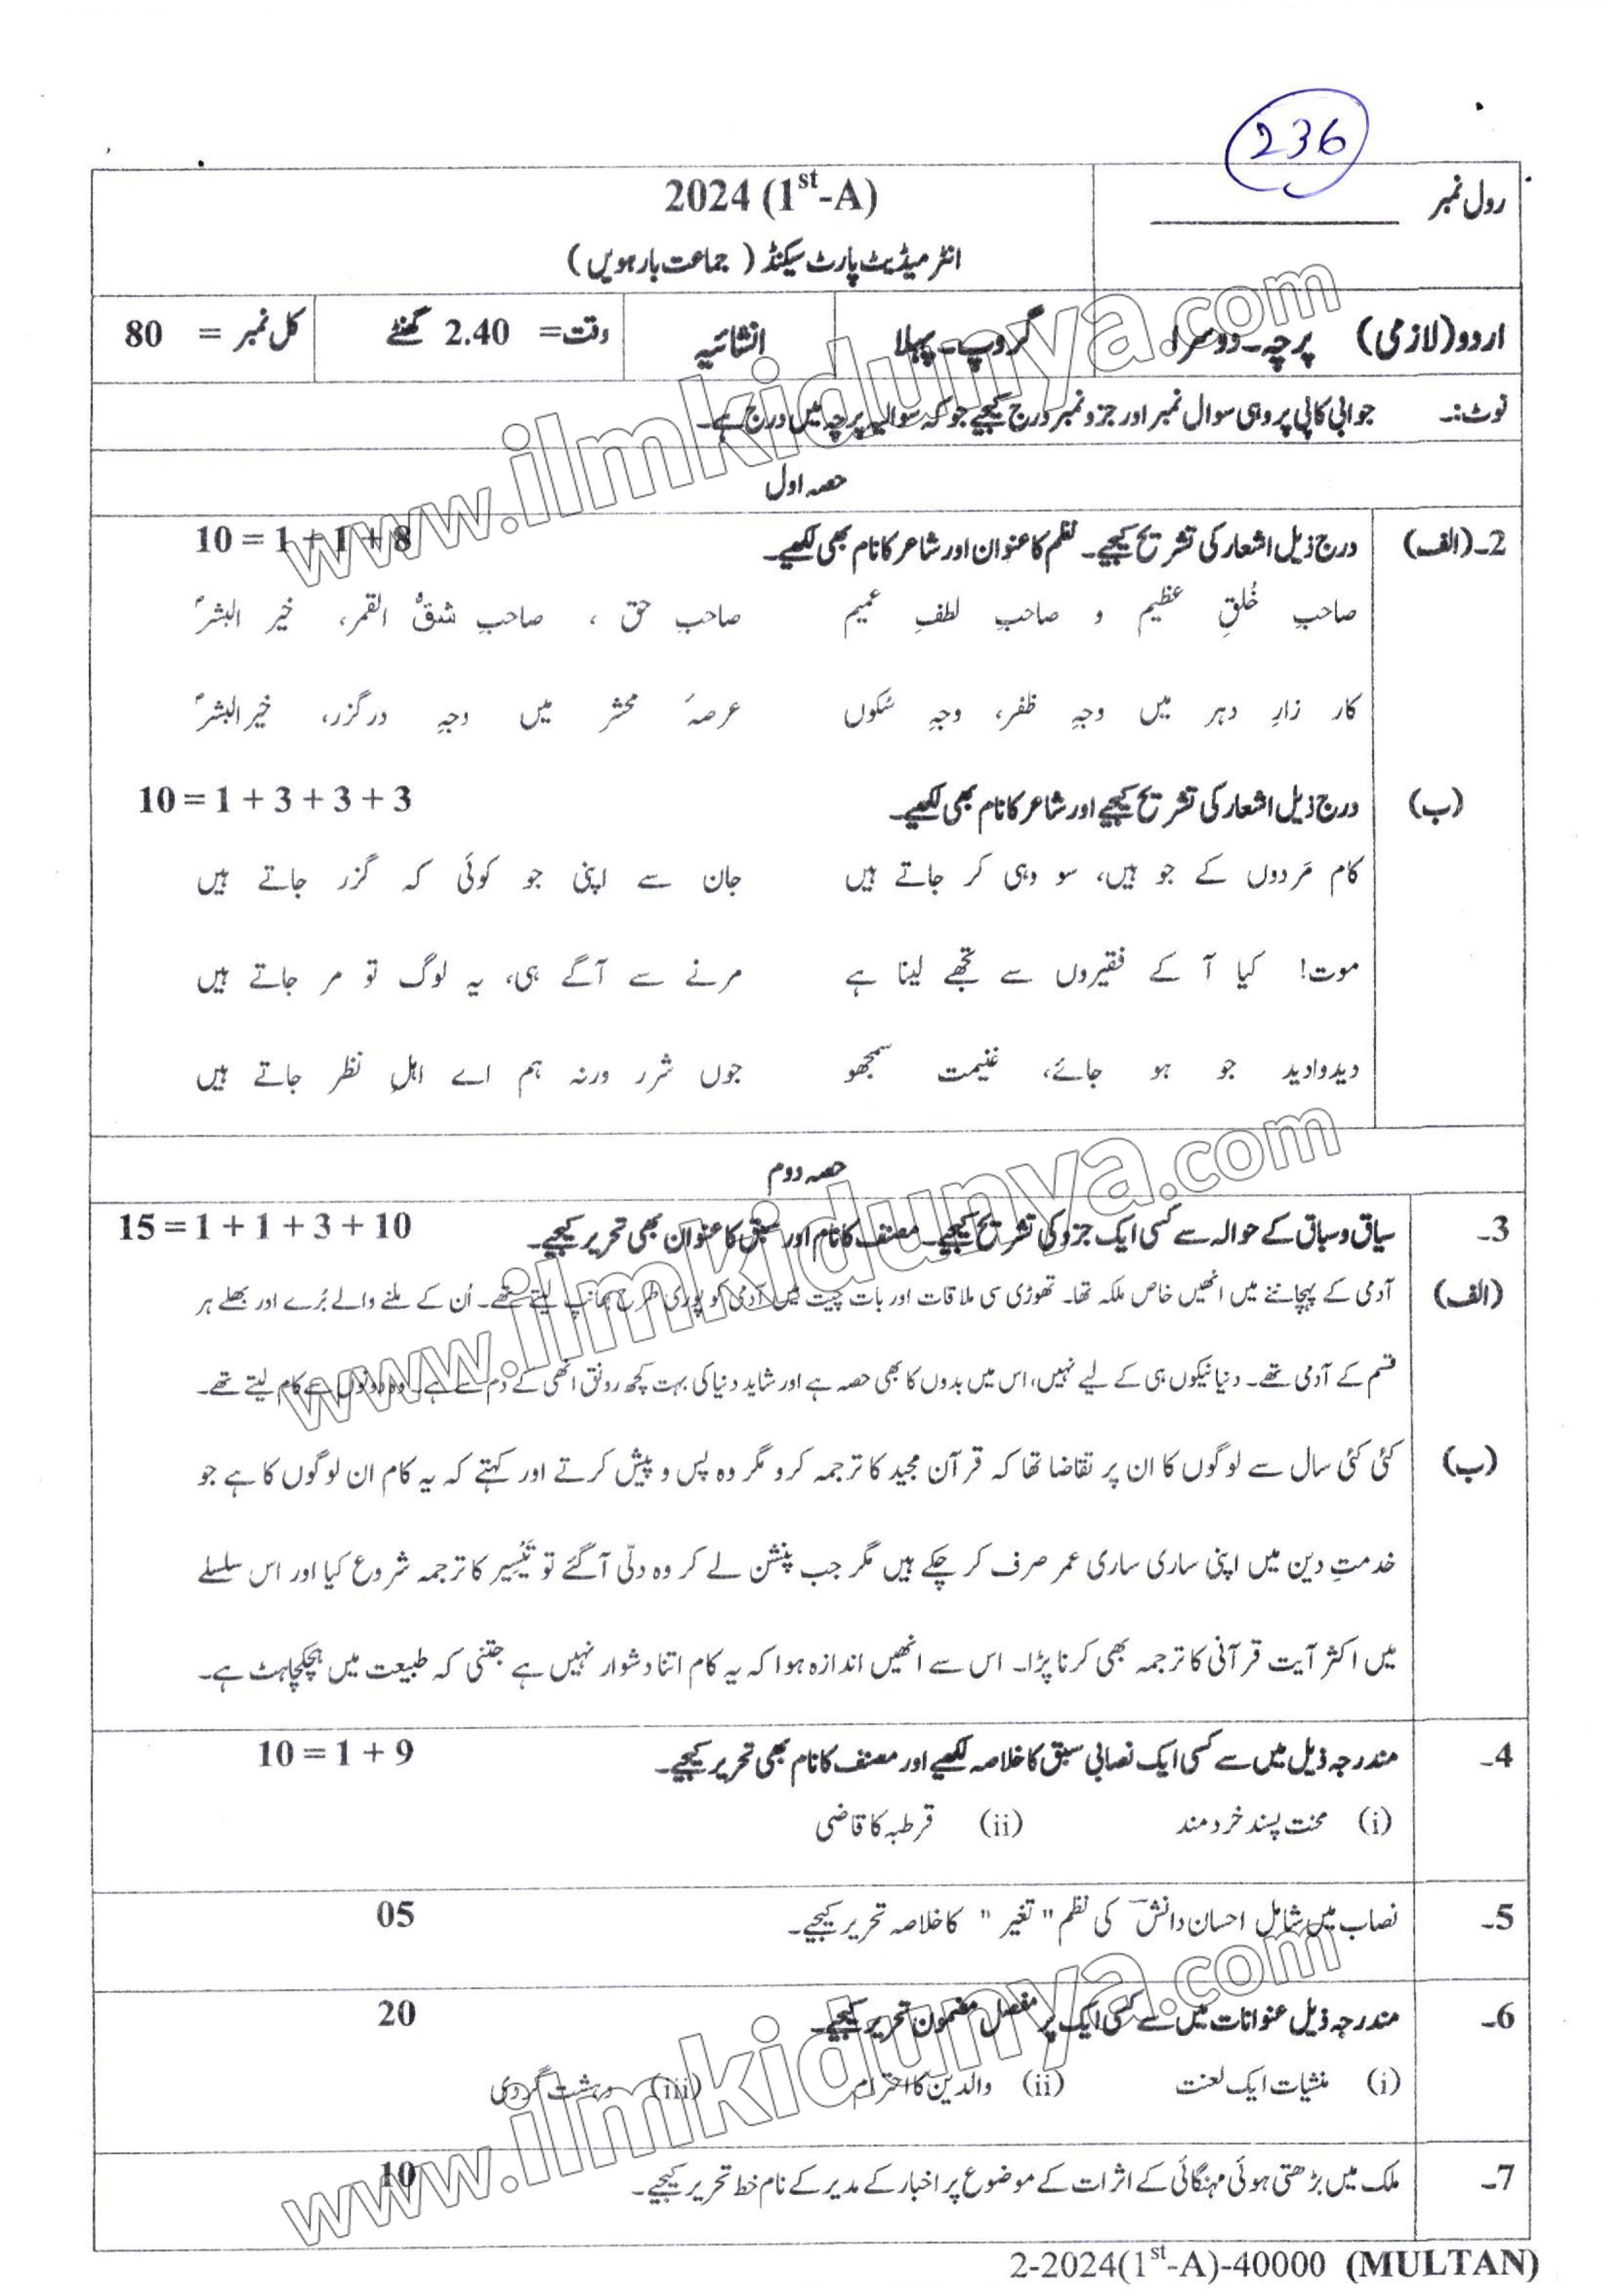 236
رول نمبر
2024 (1st-A)
انٹرمیڈیٹ پارٹ سیکنڈ ( جماعت بارہویں )
اردو (لازمی) پرچہ۔دوسرا گروپ۔پہلا انشائیہ وقت= 2.40 گھنٹے کل نمبر = 80
نوٹ:۔ جوابی کاپی پر وہی سوال نمبر اور جزو نمبر درج کیجیے جو کہ سوالیہ پرچہ میں درج ہے۔
حصہ اول
2۔(الف) درج ذیل اشعار کی تشریح کیجیے۔ نظم کا عنوان اور شاعر کا نام بھی لکھیے۔ 10 = 1 + 1 + 8
صاحبِ خُلقِ عظیم و صاحبِ لطفِ عمیم صاحبِ حق ، صاحبِ شقُّ القمر، خیر البشرؐ
کار زارِ دہر میں وجہِ ظفر، وجہِ سُکوں عرصۂ محشر میں وجہِ درگزر، خیر البشرؐ
(ب) درج ذیل اشعار کی تشریح کیجیے اور شاعر کا نام بھی لکھیے۔ 10 = 1 + 3 + 3 + 3
کام مَردوں کے جو ہیں، سو وہی کر جاتے ہیں جان سے اپنی جو کوئی کہ گزر جاتے ہیں
موت! کیا آ کے فقیروں سے تجھے لینا ہے مرنے سے آگے ہی، یہ لوگ تو مر جاتے ہیں
دیدوادید جو ہو جائے، غنیمت سمجھو جوں شرر ورنہ ہم اے اہلِ نظر جاتے ہیں
حصہ دوم
3۔ سیاق و سباق کے حوالہ سے کسی ایک جزو کی تشریح کیجیے۔ مصنف کا نام اور سبق کا عنوان بھی تحریر کیجیے۔ 15 = 1 + 1 + 3 + 10
(الف) آدمی کے پہچاننے میں انھیں خاص ملکہ تھا۔ تھوڑی سی ملاقات اور بات چیت میں آدمی کو پوری طرح بھانپ لیتے تھے۔ اُن کے ملنے والے بُرے اور بھلے ہر
قسم کے آدمی تھے۔ دنیا نیکوں ہی کے لیے نہیں، اس میں بدوں کا بھی حصہ ہے اور شاید دنیا کی بہت کچھ رونق انھی کے دم سے ہے۔ وہ دونوں سے کام لیتے تھے۔
(ب) کئی کئی سال سے لوگوں کا ان پر تقاضا تھا کہ قرآن مجید کا ترجمہ کرو مگر وہ پس و پیش کرتے اور کہتے کہ یہ کام ان لوگوں کا ہے جو
خدمتِ دین میں اپنی ساری ساری عمر صرف کر چکے ہیں مگر جب پنشن لے کر وہ دلّی آ گئے تو تَیسِیر کا ترجمہ شروع کیا اور اس سلسلے
میں اکثر آیت قرآنی کا ترجمہ بھی کرنا پڑا۔ اس سے انھیں اندازہ ہوا کہ یہ کام اتنا دشوار نہیں ہے جتنی کہ طبیعت میں ہچکچاہٹ ہے۔
4۔ مندرجہ ذیل میں سے کسی ایک نصابی سبق کا خلاصہ لکھیے اور مصنف کا نام بھی تحریر کیجیے۔ 10 = 1 + 9
(i) محنت پسند خرد مند (ii) قرطبہ کا قاضی
5۔ نصاب میں شامل احسان دانشؔ کی نظم "تغیر" کا خلاصہ تحریر کیجیے۔ 05
6۔ مندرجہ ذیل عنوانات میں سے کسی ایک پر مفصل مضمون تحریر کیجیے۔ 20
(i) منشیات ایک لعنت (ii) والدین کا احترام (iii) دہشت گردی
7۔ ملک میں بڑھتی ہوئی مہنگائی کے اثرات کے موضوع پر اخبار کے مدیر کے نام خط تحریر کیجیے۔ 10
2-2024(1st-A)-40000 (MULTAN)
www.ilmkidunya.com
www.ilmkidunya.com
www.ilmkidunya.com